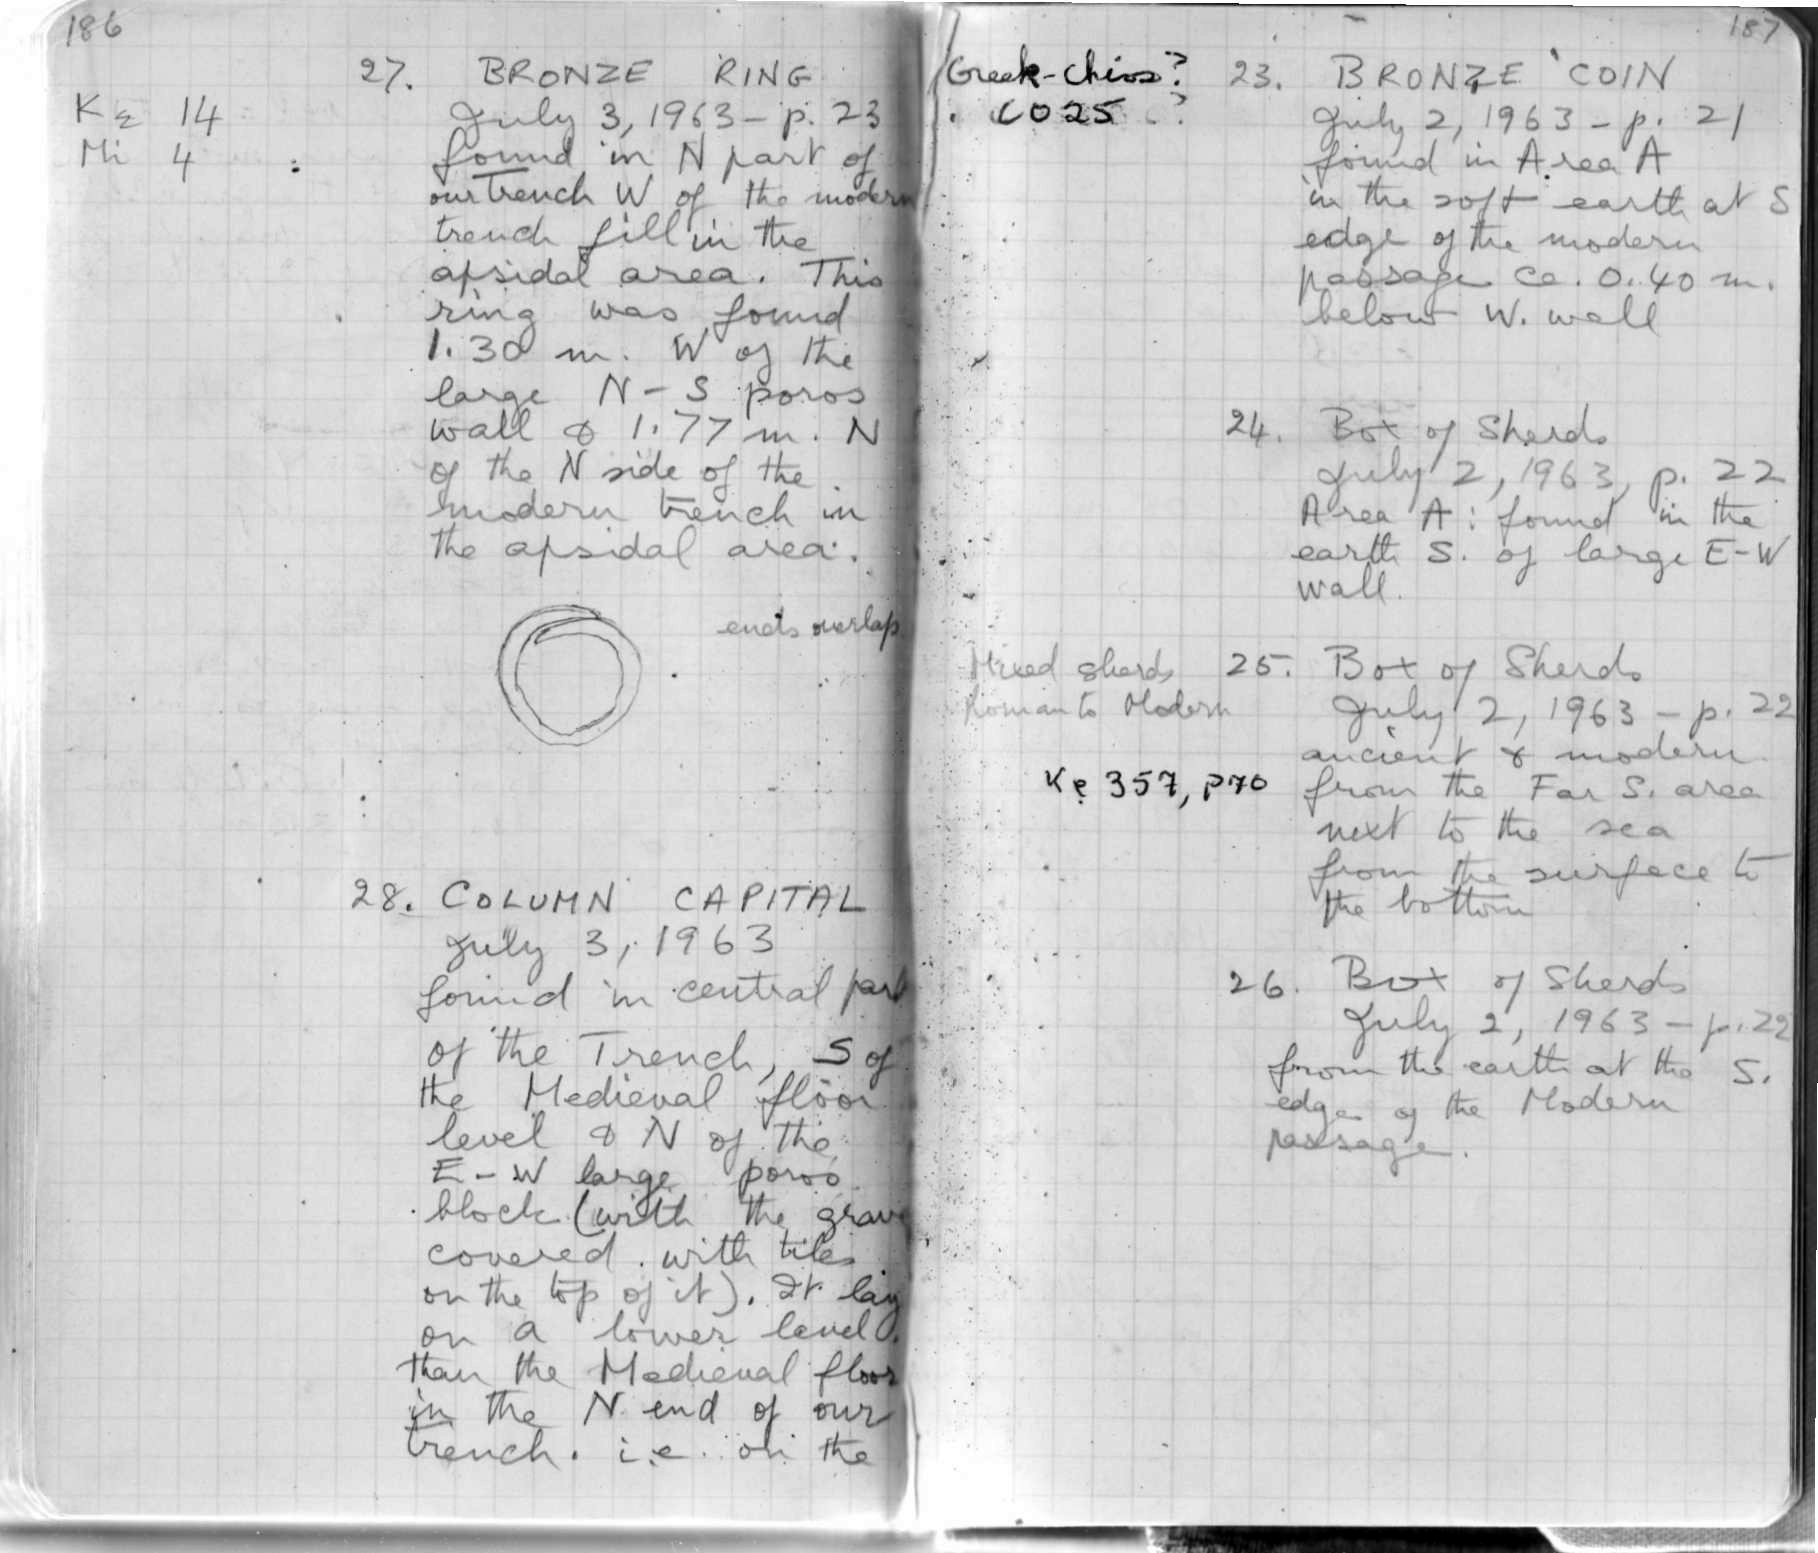 186
27. BRONZE RING
KΣ 14
July 3, 1963 - p. 23
Mi 4 :
found in N part of
our Trench W of the modern
trench fill in the
apsidal area. This
ring was found
1.30 m. W of the
large N-S poros
wall & 1.77 m. N
of the N side of the
modern trench in
the apsidal area.
ends overlap
28. COLUMN CAPITAL
July 3, 1963
found in central part
of the Trench, S of
the Medieval floor
level & N of the
E-W large poros
block (with the grave
covered with tiles
on the top of it). It lay
on a lower level
than the Medieval floor
in the N end of our
trench. i.e. on the
187
Greek-Chios? 23. BRONZE COIN
CO25 ?
July 2, 1963 - p. 21
found in Area A
in the soft earth at S
edge of the modern
passage ca. 0.40 m.
below W. wall
24. Box of Sherds
July 2, 1963, p. 22
Area A: found in the
earth S. of large E-W
wall.
Mixed sherds 25. Box of Sherds
Roman to Modern
July 2, 1963 - p. 22
ancient & modern
Ke 357, P70
from the Far S. area
next to the sea
from the surface to
the bottom
26. Box of Sherds
July 2, 1963 - p. 22
from the earth at the S.
edge of the Modern
passage.